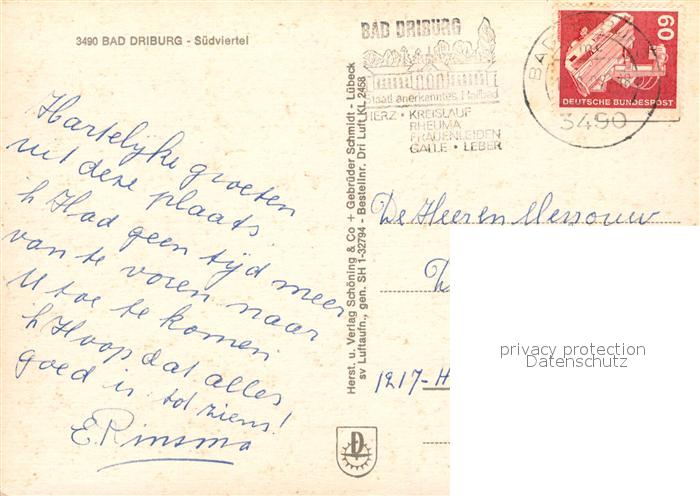 3490 BAD DRIBURG - Südviertel
BAD DRIBURG
Staatl. anerkanntes Heilbad
HERZ • KREISLAUF
RHEUMA
FRAUENLEIDEN
GALLE • LEBER
BAD
3490
60
DEUTSCHE BUNDESPOST
Hartelijke groeten
uit deze plaats.
ik Had geen tijd meer
van te voren naar
U toe te komen
ik Hoop dat alles
goed is. tot ziens!
E. Rinsma
Herst. u. Verlag Schöning & Co + Gebrüder Schmidt · Lübeck
sv Luftaufn., gen. SH 1-32794 - Bestellnr. Dri Luft KL 2458
De Heer en Mevrouw
1217-H
privacy protection
Datenschutz